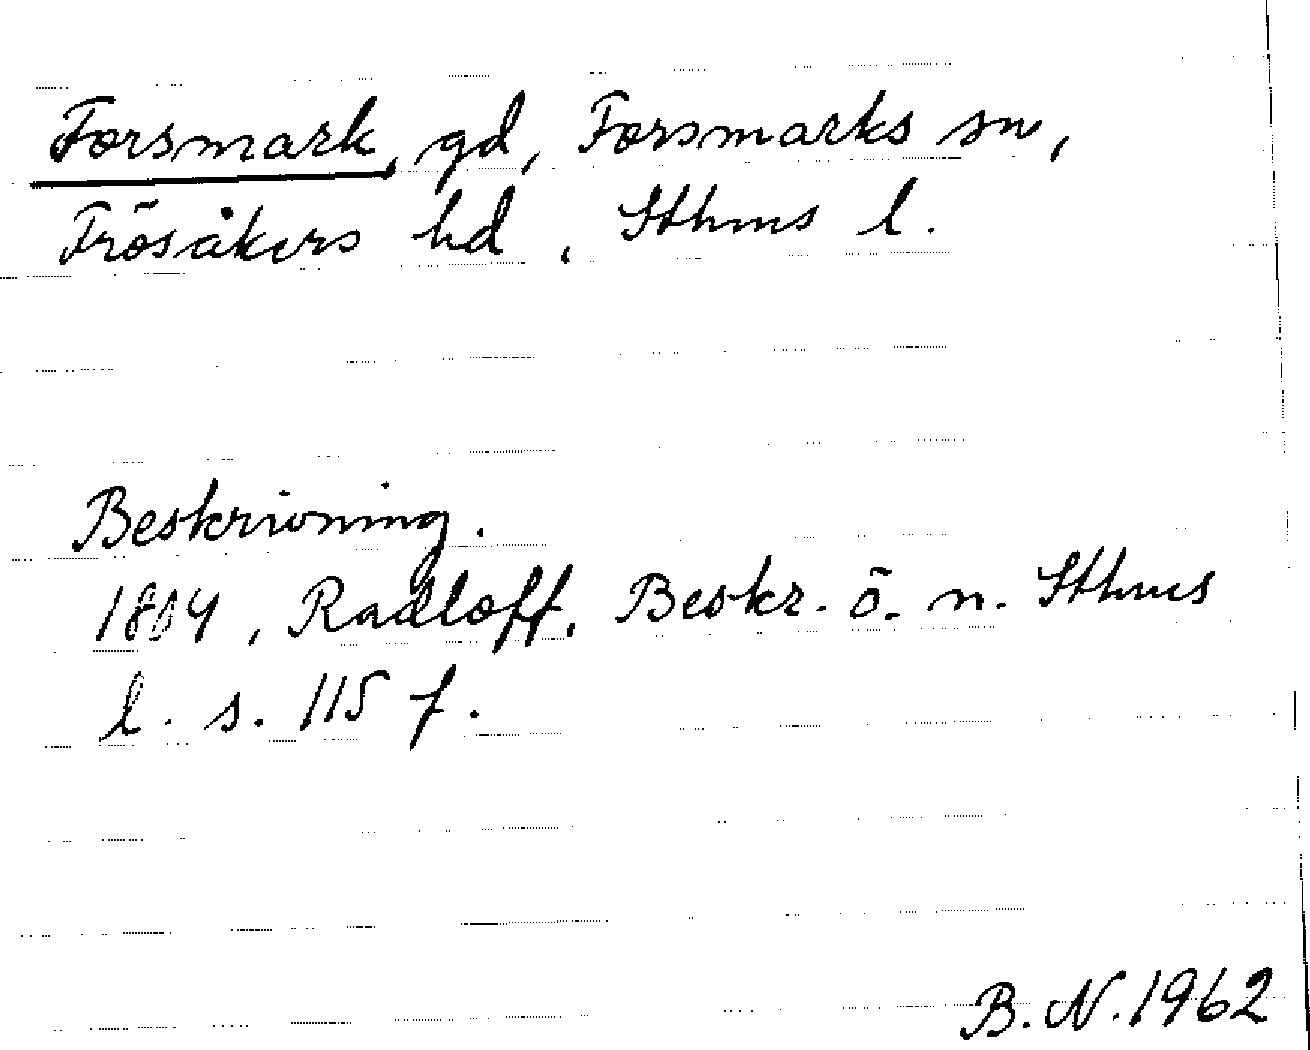 Forsmark, gd, Forsmarks sn,
Frösåkers hd, Sthms l.
Beskrivning.
1804, Radloff, Beskr. ö. n. Sthms
l. s. 115 f.
B. N. 1962